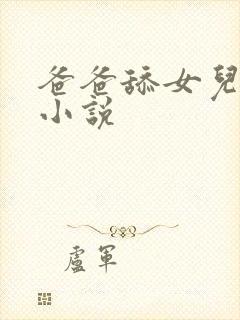 爸爸舔女兒
小説
盧軍